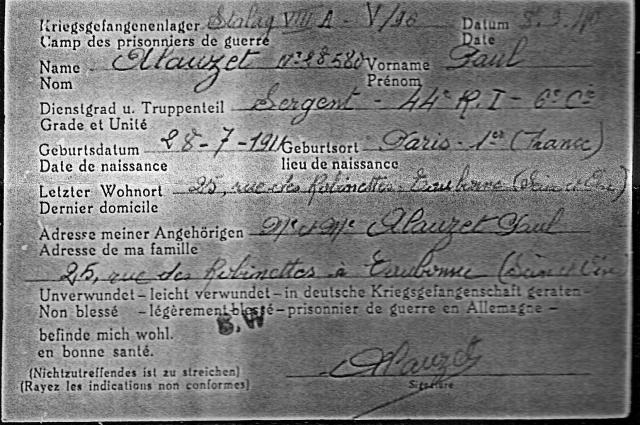 Kriegsgefangenenlager Stalag VIII A - V/96 Datum 8.9.40
Camp des prisonniers de guerre Date
Name Alauzet n° 28580 Vorname Paul
Nom Prénom
Dienstgrad u. Truppenteil Sergent - 44e R.I - 6e Cie
Grade et Unité
Geburtsdatum 28-7-1911 Geburtsort Paris - 1er (France)
Date de naissance lieu de naissance
Letzter Wohnort 25, rue des Robinettes (Seine et Oise)
Dernier domicile
Adresse meiner Angehörigen Mr et Me Alauzet Paul
Adresse de ma famille
25, rue des Robinettes à (Seine et Oise)
Unverwundet – leicht verwundet – in deutsche Kriegsgefangenschaft geraten –
Non blessé – légèrement blessé – prisonnier de guerre en Allemagne –
B.W
befinde mich wohl.
en bonne santé.
(Nichtzutreffendes ist zu streichen) Alauzet
(Rayez les indications non conformes) Signature